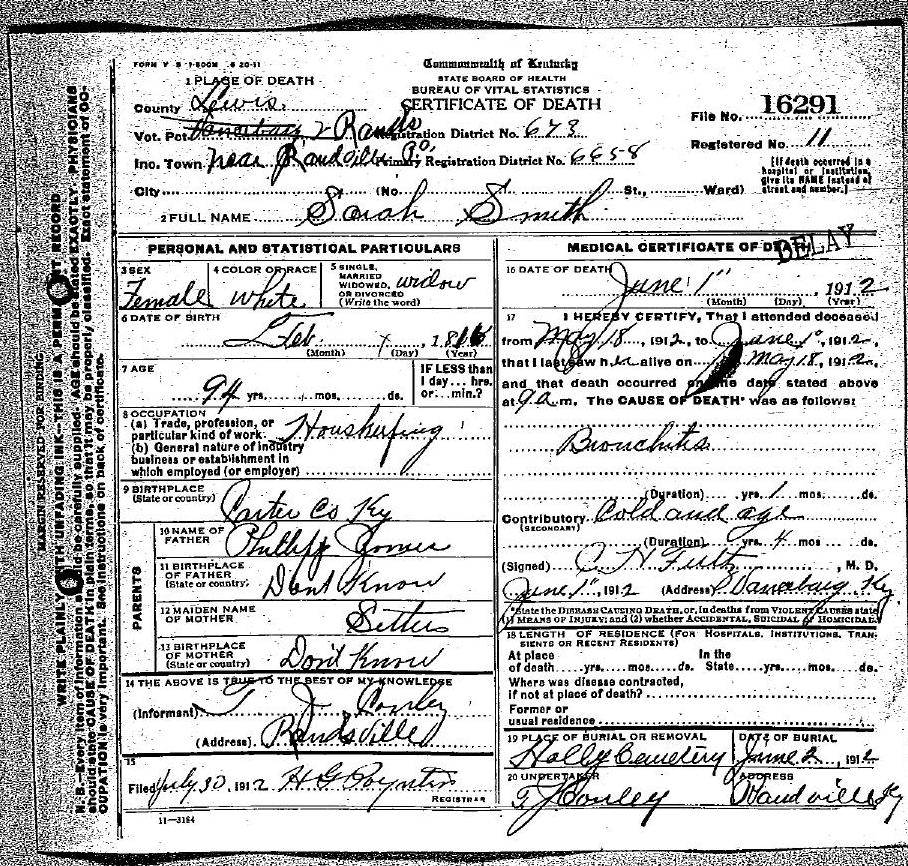 FORM V S 1-500M 6 20-11
Commonwealth of Kentucky
STATE BOARD OF HEALTH
BUREAU OF VITAL STATISTICS
CERTIFICATE OF DEATH
1 PLACE OF DEATH
County Lewis.
File No. 16291
Vot. Pct. Rands Registration District No. 679
Registered No. 11
Inc. Town near Randville PO, Primary Registration District No. 6658
(If death occurred in a hospital or institution, give its NAME instead of street and number.)
City (No. St., Ward)
2 FULL NAME Sarah Smith
PERSONAL AND STATISTICAL PARTICULARS
3 SEX
Female
4 COLOR OR RACE
White
5 SINGLE, MARRIED WIDOWED, OR DIVORCED (Write the word)
widow
6 DATE OF BIRTH
Feb 1 , 1816
(Month) (Day) (Year)
7 AGE
94 yrs. mos. ds.
IF LESS than 1 day... hrs. or... min.?
8 OCCUPATION
(a) Trade, profession, or particular kind of work
(b) General nature of industry business or establishment in which employed (or employer)
9 BIRTHPLACE
(State or country)
Carter Co Ky
PARENTS
10 NAME OF FATHER
Phillip
11 BIRTHPLACE OF FATHER
(State or country)
Dont Know
12 MAIDEN NAME OF MOTHER
Sitters
13 BIRTHPLACE OF MOTHER
(State or country)
Dont Know
14 THE ABOVE IS TRUE TO THE BEST OF MY KNOWLEDGE
(Informant) T J Conley
(Address) Randsville
15
Filed July 30, 1912 H G Poynter
REGISTRAR
11—3184
MEDICAL CERTIFICATE OF DEATH
DELAY
16 DATE OF DEATH
June 1" , 1912
(Month) (Day) (Year)
17 I HEREBY CERTIFY, That I attended deceased
from May 18, 1912, to June 1", 1912,
that I last saw her alive on May 18, 1912,
and that death occurred on the date stated above
at 9 a m. The CAUSE OF DEATH was as follows:
Bronchitis
(Duration) yrs. 1 mos. ds.
Contributory Cold and age
(SECONDARY)
(Duration) yrs. 4 mos ds.
(Signed) , M. D.
June 1", 1912 (Address) Vanceburg Ky
*State the DISEASE CAUSING DEATH, or, in deaths from VIOLENT CAUSES state (1) MEANS OF INJURY; and (2) whether ACCIDENTAL, SUICIDAL or HOMICIDAL
18 LENGTH OF RESIDENCE (FOR HOSPITALS, INSTITUTIONS, TRANSIENTS OR RECENT RESIDENTS)
At place of death yrs. mos. ds. In the State yrs. mos. ds.
Where was disease contracted,
if not at place of death?
Former or
usual residence
19 PLACE OF BURIAL OR REMOVAL
Holly Cemetery
DATE OF BURIAL
June 2, 1912
20 UNDERTAKER
T J Conley
ADDRESS
Randville Ky
MARGIN RESERVED FOR BINDING.
WRITE PLAINLY WITH UNFADING INK—THIS IS A PERMANENT RECORD
N. B.—Every item of information should be carefully supplied. AGE should be stated EXACTLY. PHYSICIANS should state CAUSE OF DEATH in plain terms, so that it may be properly classified. Exact statement of OCCUPATION is very important. See instructions on back of certificate.